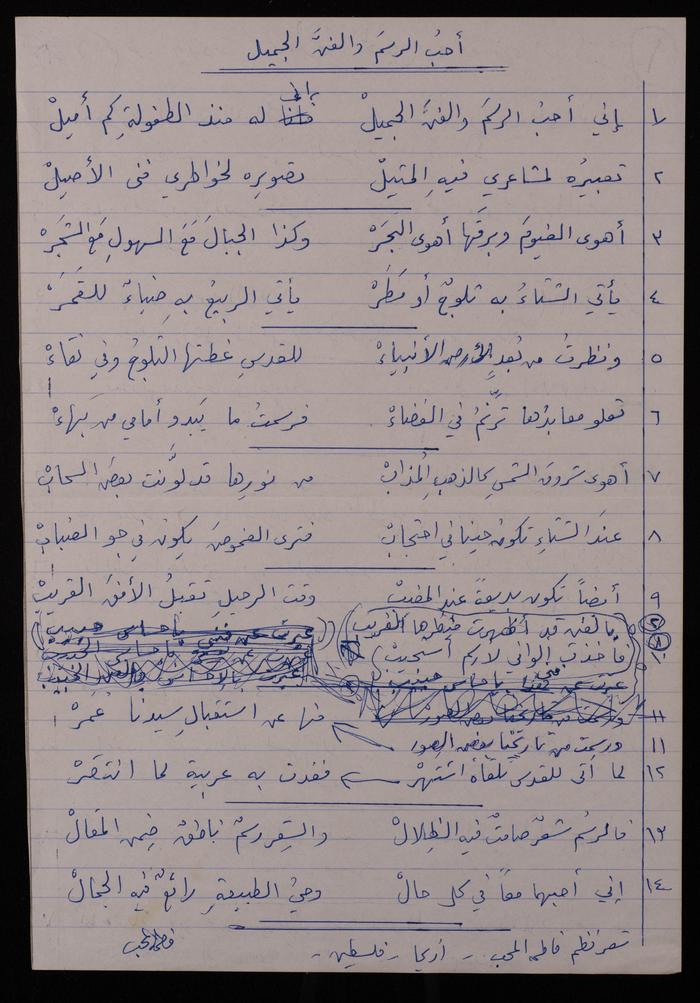 أحبُ الرسمَ والفنَّ الجميل
١ إني أحبُ الرسمَ والفنَّ الجميلْ براني له منذ الطفولةِ كم أميلْ
٢ تعبيرُه لمشاعري فيهِ المثيلْ تصويره لخواطري فنى الأصيلْ
٣ أهوى الغيومَ وبرقَها أهوى البَحَرْ وكذا الجبالَ مَعَ السهولِ مَعَ الشَجَرْ
٤ يأتي الشتاءُ به ثلوجٌ أو مَطَرْ يأتي الربيعُ بهِ ضياءٌ للقَمَرْ
٥ ونظرتُ من بُعدٍ لأرض الأنبياءْ للقدسِ غطتها الثلوجُ وفي نقاءْ
٦ تعلو معابدُها ترّنمُ في الفضاءْ فرسمتُ ما يَبدو أمامي من بَهاءْ
٧ أهوى شروقَ الشمسِ كالذهبِ المُذابْ من نورِها قد لوَّنت بعضَ السحابْ
٨ عندَ الشتاءِ تكونُ حيناً في احتجابْ فترى الغموضَ يكونُ في جو الضبابْ
٩ أيضاً تكون بديعةً عند المغيبْ وقت الرحيلِ تقبلُ الأفقَ القريبْ
بالفن قد أظهرت منظرها الغريب
١٠ فأجذب الواني لازم أستجيبْ
عبرت عن فني بإحساس حبيب
١١ ورسمت من تاريخنا بعض الصور فنها عن استقبالِ سيدنا عمرْ
١٢ لما أتى للقدسِ تلقاهُ اشتهرْ فغدت به عربية لما انتصرْ
١٣ فالرسمُ شعرٌ صامتٌ فيه الظِلالْ والشِعر رسمٌ ناطقٌ ضِمن المقالْ
١٤ إني أحبهما معاً في كل حالْ وحيُ الطبيعةِ رائعٌ فيه الجمالْ
شعر نظم فاطمة المحب - أريحا - فلسطين -
فاطمة المحب